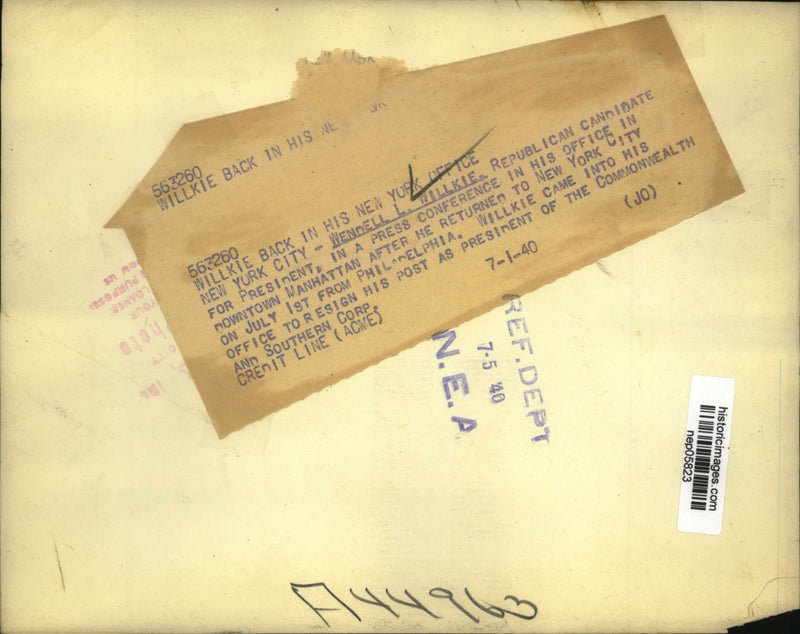 563260
WILLKIE BACK IN HIS NEW YOR
563260
WILLKIE BACK IN HIS NEW YORK OFFICE
NEW YORK CITY - WENDELL L. WILLKIE, REPUBLICAN CANDIDATE
FOR PRESIDENT, IN A PRESS CONFERENCE IN HIS OFFICE IN
DOWNTOWN MANHATTAN AFTER HE RETURNED TO NEW YORK CITY
ON JULY 1ST FROM PHILADELPHIA. WILLKIE CAME INTO HIS
OFFICE TO RESIGN HIS POST AS PRESIDENT OF THE COMMONWEALTH
AND SOUTHERN CORP.
CREDIT LINE (ACME) 7-1-40 (JO)
REF. DEPT
7-5 '40
N.E.A
historicimages.com
nep05823
A44963